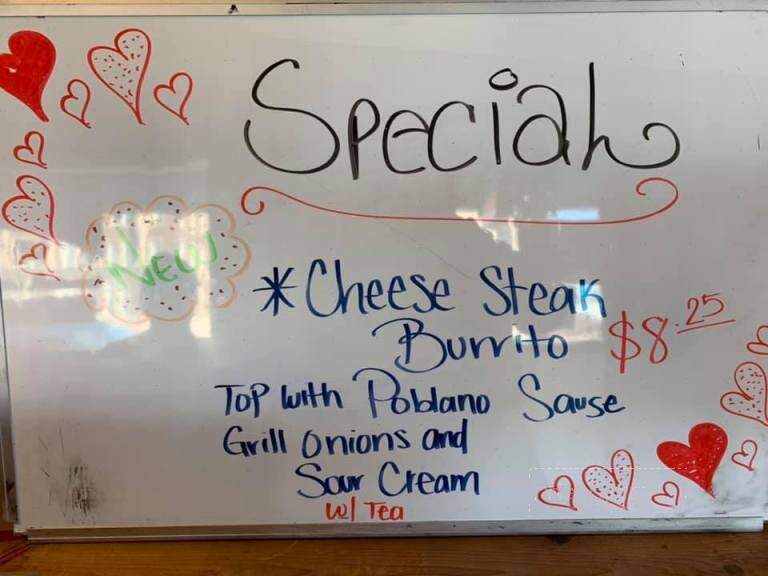 Special
NEW
*Cheese Steak
Burrito $8.25
Top with Poblano Sause
Grill onions and
Sour Cream
w/ Tea